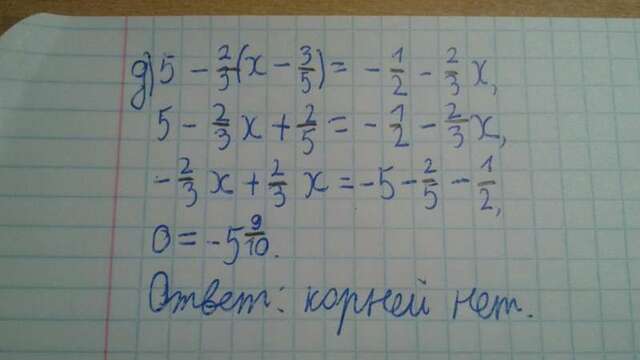 д) 5 - 2/3(x - 3/5) = - 1/2 - 2/3 x,
5 - 2/3 x + 2/5 = - 1/2 - 2/3 x,
- 2/3 x + 2/3 x = -5 - 2/5 - 1/2,
0 = -5 9/10.
Ответ: корней нет.